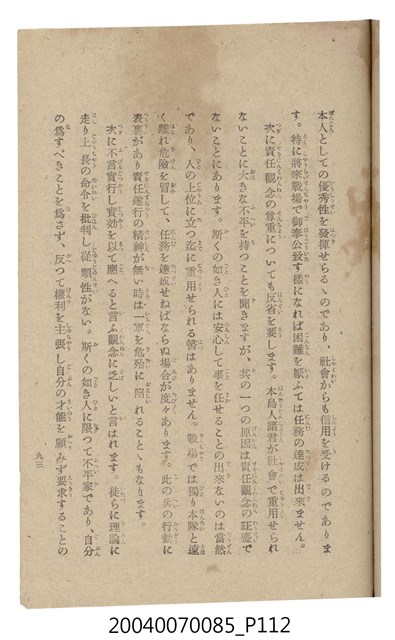 本人としての優秀性を發揮せらるゝのであり、社會からも信用を受けるのでありま
す。特に將來戰場で御奉公致す樣になれば困難を厭ふては任務の達成は出來ません。
次に責任觀念の尊重についても反省を要します。本島人諸君が社會で重用せられ
ないことに大きな不平を持つことを聞きますが、其の一つの原因は責任觀念の旺盛で
ないことにあります。斯くの如き人には安心して事を任せることの出來ないのは當然
であり、人の上位に立つ迄に重用せられる筈はありません。戰場では獨り本隊と遠
く離れ危險を冒して、任務を達成せねばならぬ場合が度々あります。此の兵の行動に
表裏があり責任遂行の精神が無い時は一軍を危殆に陷れることゝもなります。
次に不言實行し實効を以て應へると言ふ觀念に乏しいと言はれます。徒らに理論に
走り上長の命令を批判し從順性がない。斯くの如き人に限つて不平家であり、自分
の爲すべきことを爲さず、反つて權利を主張し自分の才能を顧みず要求することの
九三
20040070085_P112